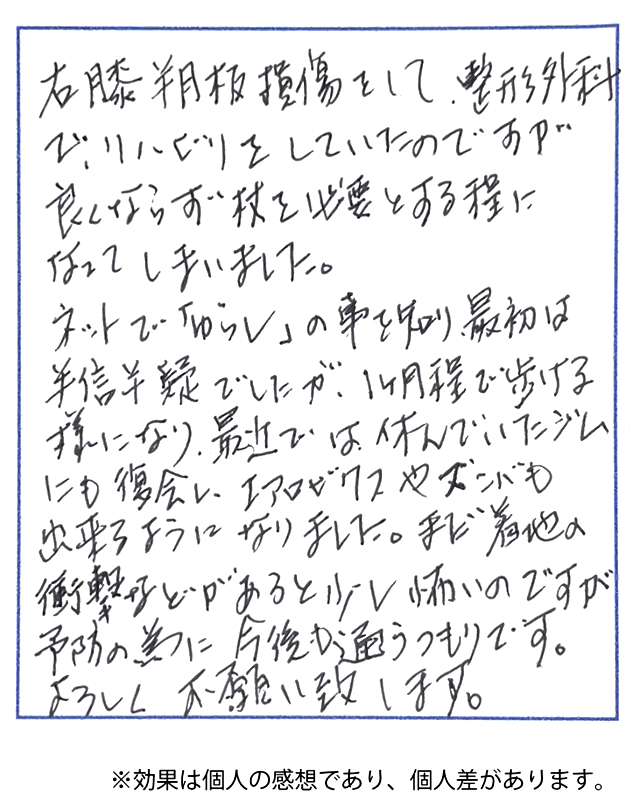 右膝半月板損傷をして、整形外科
で、リハビリをしていたのですが
良くならず杖を必要とする程に
なってしまいました。
ネットで「ゆらし」の事を知り最初は
半信半疑でしたが、1ヶ月程で歩ける
様になり、最近では、休んでいたジム
にも復会し、エアロビクスやズンバも
出来るようになりました。まだ着地の
衝撃などがあると少し怖いのですが
予防の為に今後も通うつもりです。
よろしくお願い致します。
※効果は個人の感想であり、個人差があります。